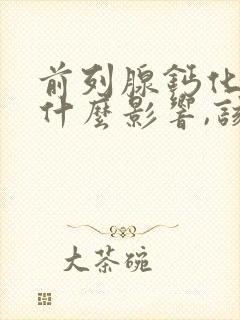 前列腺鈣化
什麼影響,該
大茶碗